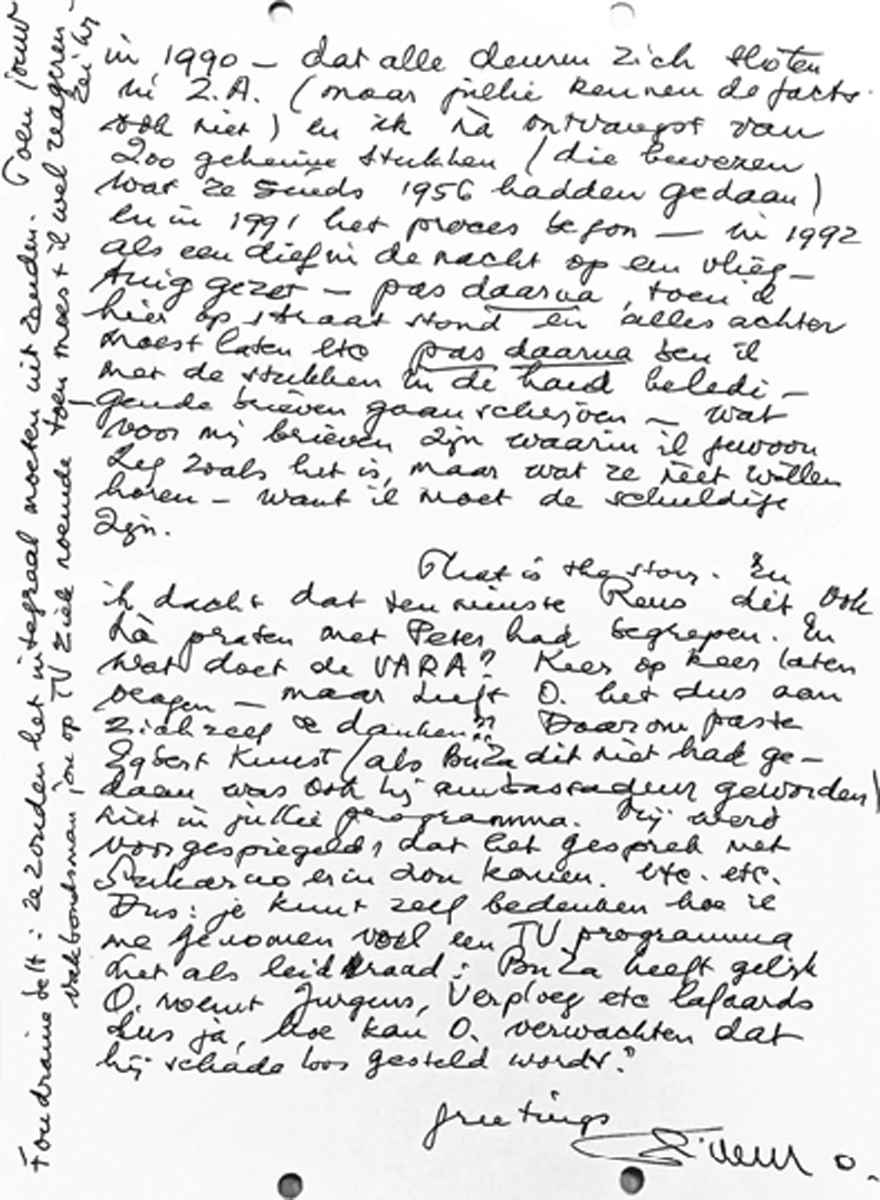 in 1990 – dat alle deuren zich sloten
in Z.A. (maar jullie kennen de facts
ook niet) en ik na ontvangst van
200 geheime stukken (die bewezen
wat ze sinds 1956 hadden gedaan)
en in 1991 het proces begon – in 1992
als een dief in de nacht op een vlieg-
tuig gezet – pas daarna, toen ik
hier op straat stond en alles achter
moest laten etc pas daarna ben ik
met de stukken in de hand beledi-
gende brieven gaan schrijven – wat
voor mij brieven zijn waarin ik gewoon
zeg zoals het is, maar wat ze niet willen
horen – want ik moet de schuldige
zijn.
That is the story. En
ik dacht dat ten minste Rens dit ook
na praten met Peter had begrepen. En
wat doet de VARA? Keer op keer laten
vragen – maar heeft O. het dus aan
zichzelf te danken?? Daarom paste
Egbert Kunst (als BuZa dit niet had ge-
daan was ook hij ambassadeur geworden)
niet in jullie programma. Mij werd
voorgespiegeld, dat het gesprek met
Sukarno erin zou komen. etc. etc.
Dus: je kunt zelf bedenken hoe ik
me genomen voel een TV programma
met als leidraad: BuZa heeft gelijk
O. noemt Jurgens, Verploeg etc lafaards
dus ja, hoe kan O. verwachten dat
hij schadeloos gesteld wordt?
greetings
Foudraine belt: ze zouden het integraal moeten uitzenden. Toen jouw
vakbondsman jou op TV ziek noemde toen moest ik wel reageren –
zei hij